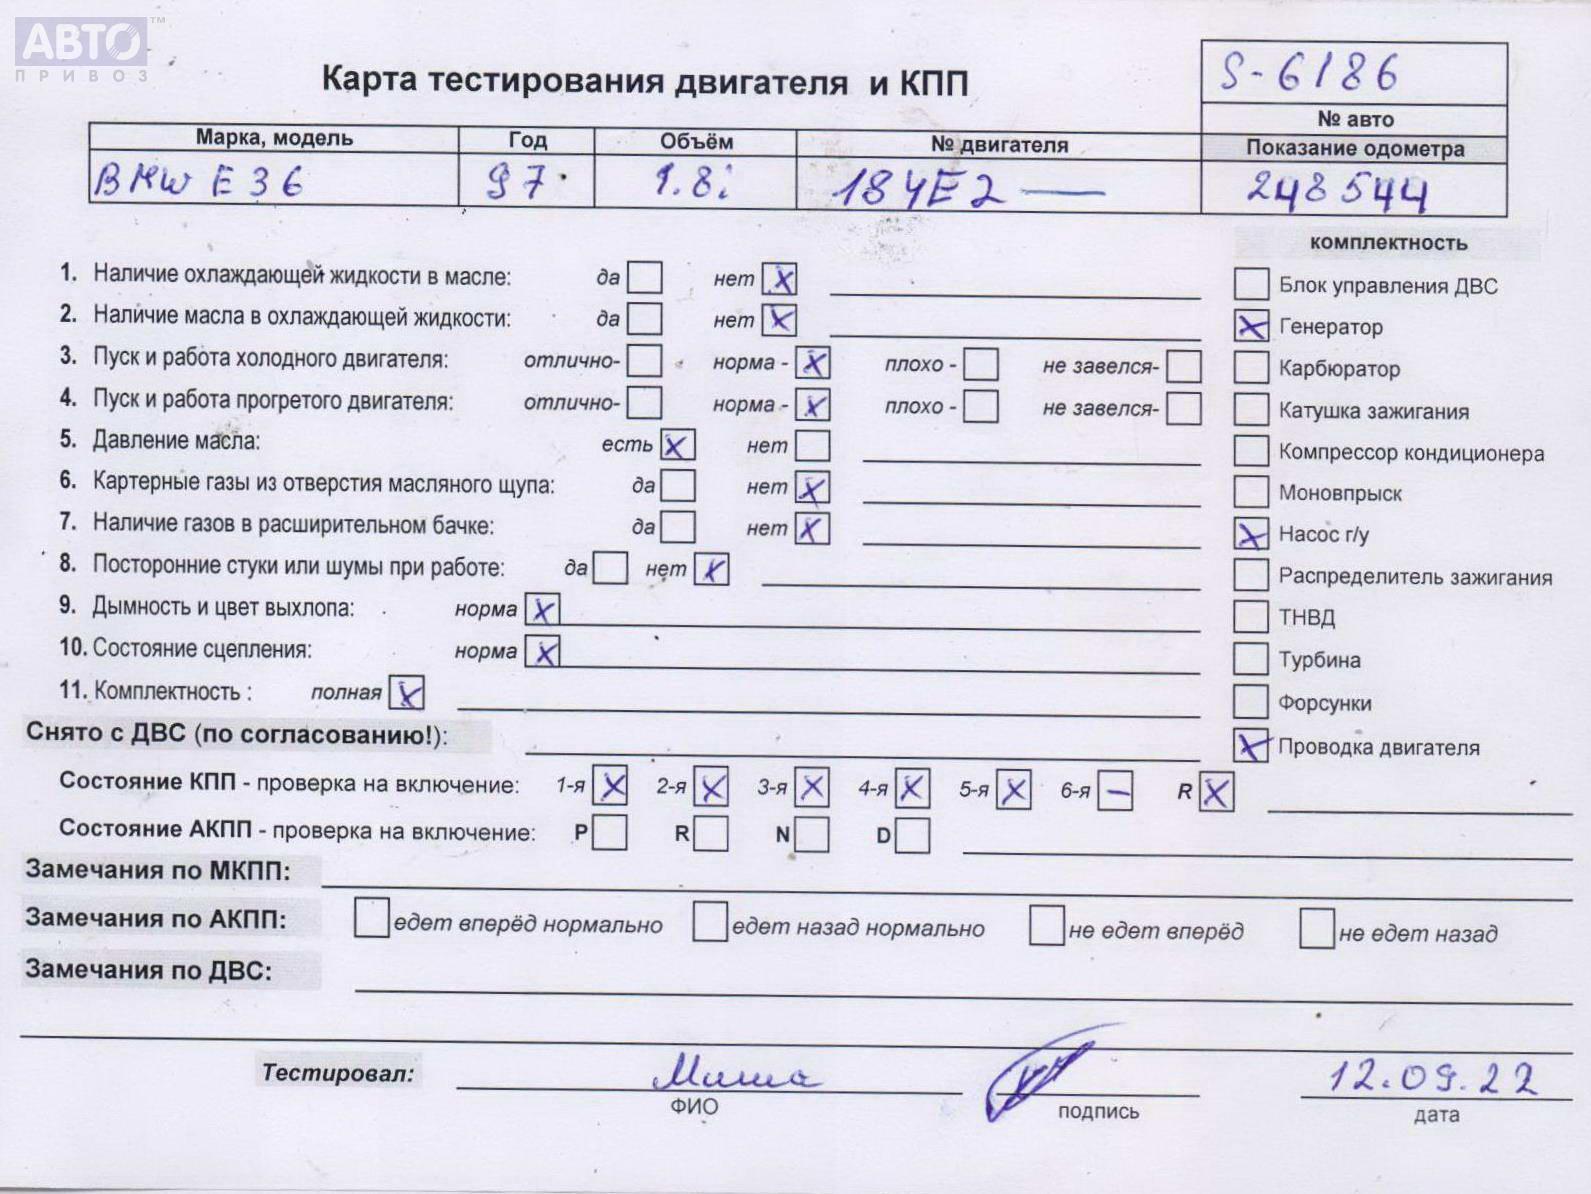 АВТО™
ПРИВОЗ
Карта тестирования двигателя и КПП
S-6186
№ авто
Марка, модель Год Объём № двигателя Показание одометра
BMW E36 97 1.8i 184E2 — 248544
комплектность
1. Наличие охлаждающей жидкости в масле: да нет X
Блок управления ДВС
2. Наличие масла в охлаждающей жидкости: да нет X
X Генератор
3. Пуск и работа холодного двигателя: отлично- норма - X плохо - не завелся-
Карбюратор
4. Пуск и работа прогретого двигателя: отлично- норма - X плохо - не завелся-
Катушка зажигания
5. Давление масла: есть X нет
Компрессор кондиционера
6. Картерные газы из отверстия масляного щупа: да нет X
Моновпрыск
7. Наличие газов в расширительном бачке: да нет X
X Насос г/у
8. Посторонние стуки или шумы при работе: да нет X
Распределитель зажигания
9. Дымность и цвет выхлопа: норма X
ТНВД
10. Состояние сцепления: норма X
Турбина
11. Комплектность : полная X
Форсунки
Снято с ДВС (по согласованию!):
X Проводка двигателя
Состояние КПП - проверка на включение: 1-я X 2-я X 3-я X 4-я X 5-я X 6-я – R X
Состояние АКПП - проверка на включение: P R N D
Замечания по МКПП:
Замечания по АКПП: едет вперёд нормально едет назад нормально не едет вперёд не едет назад
Замечания по ДВС:
Тестировал: Миша 12.09.22
ФИО подпись дата